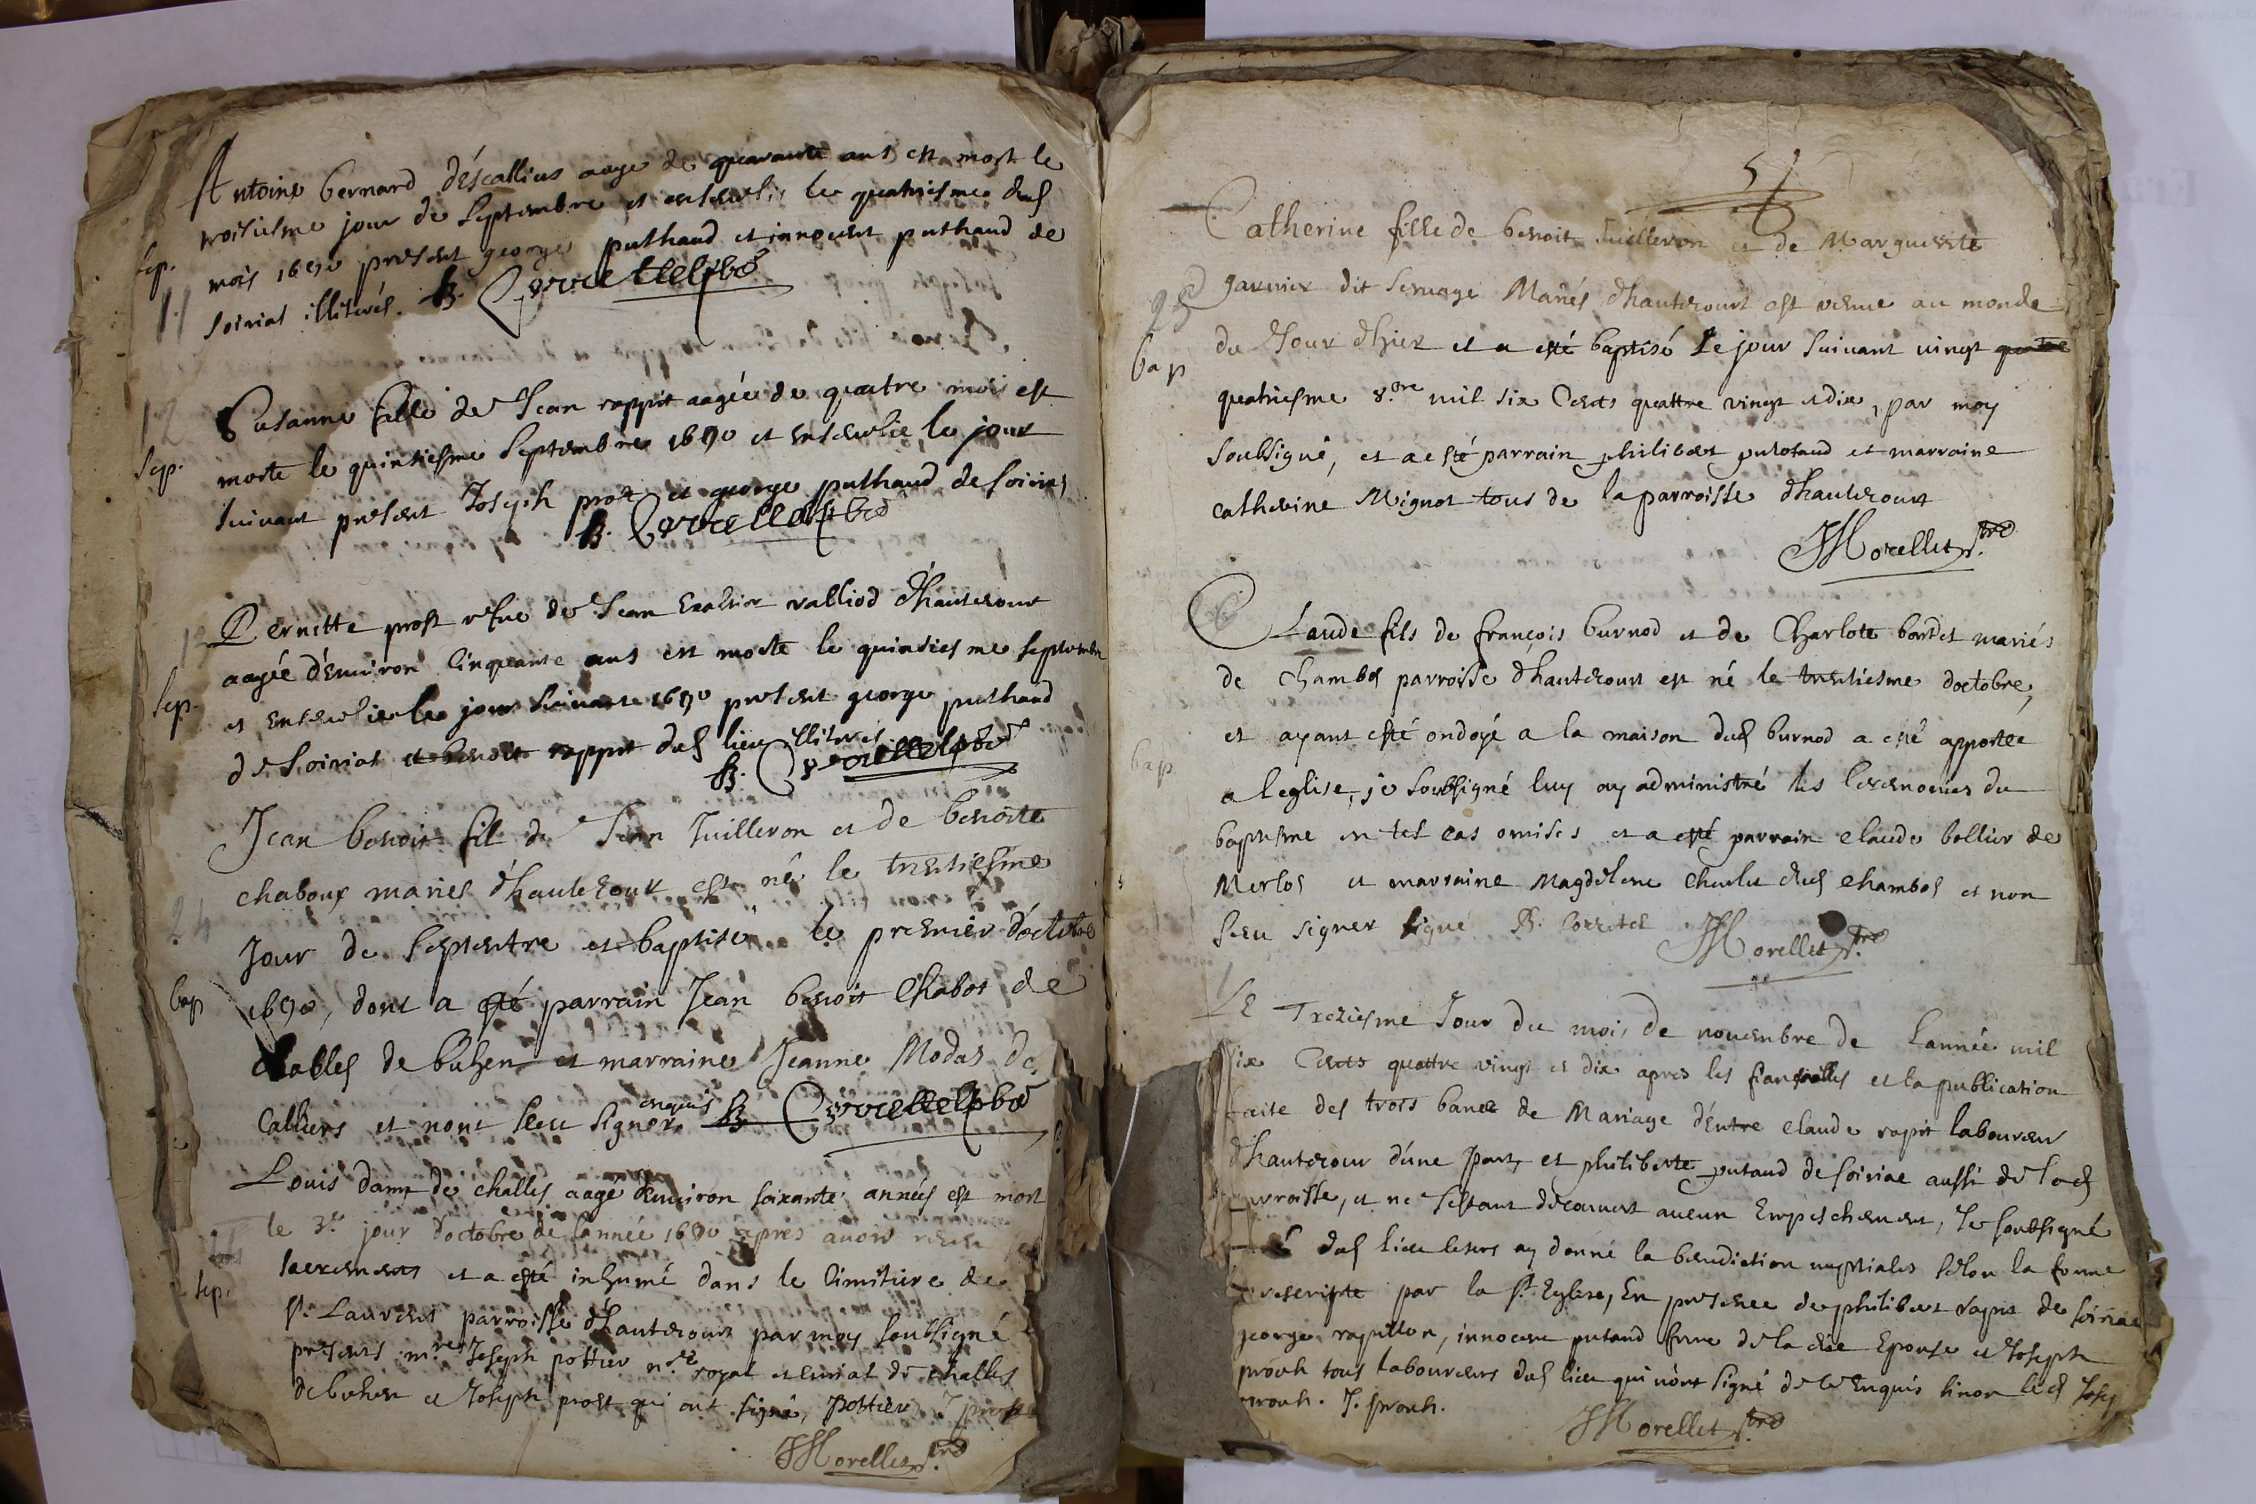 Antoine bernard d'éscallius aage de quarante ans est mort le
troisiesme jour de septembre et ensevelis le quatriesme dud
sep. mois 1690 present george puthaud et innocent puthaud de
11 soiriat illiterés. B. Corretel pbr
12 Susanne fille de Jean rappit aagée de quatre mois est
sep. morte le quinsiesme septembre 1690 et ensevelie le jour
suivant present Joseph prost et george puthaud de soiriat
B. Corretel pbr
Pernette prost vefue de Jean valliod d'hautecourt
aagée d'Environ Cinquante ans est morte le quinsiesme septembre
sep. et ensevelie le jour suivant 1690 present george puthaud
de soiriat et benoit rappit dud lieu illiterés
B. Corretel pbr
Jean benoit fil de Jean Juilleron et de benoite
chaboux mariés d'hautecour est né le trentiesme
24 Jour de septentre et baptisé le premier d'octobre
bap 1690, dont a esté parrain Jean benoit Chabot de
Challes de buhen et marraine Jeanne Modas de
Calliers et nont sceu signer enquis B. Corretel pbr
Louis dam de challes aagé denviron soixante années est mort
le 3e jour doctobre de lannée 1690 apres avoir receu
sep. sacrements et a esté inhumé dans le Cimitiere de
St. Laurent parroisse d'hautecourt par moy soubsigné
presents mre Joseph pottier nre royal et curial de challes
de buhen et Joseph prost qui ont signé, Pottier J prost
JMorellet ptre
51
Catherine fille de benoit Juilleron et de Marguerite
25 garnier dit servage Mariés d'hautecourt est venue au monde
bap du Jour d'hier et a esté baptisé Le jour suivant vingt quatre
quatriesme 8.bre mil six Cents quattre vingt et dix, par moy
soubsigné, et a esté parrain philibert putotaud et marraine
catherine Mignot tous de la parroisse d'hautecourt
JMorellet ptre
CLaude fils de françois burnod et de Charlote bordet mariés
de Chambod parroisse d'hautecourt est né le trentiesme doctobre,
et ayant esté ondoyé a la maison dud burnod a esté apportée
bap a leglise, je soubsigné luy ay administré les Ceremonies du
baptesme en tel cas omises et a esté parrain claude bollier de
Merlos et marraine Magdelene Charlet dud Chambod et non
sceu signer signé B. Corretel JMorellet ptre
LE Treziesme Jour du mois de novembre de Lannée mil
six Cents quattre vingt et dix apres les fiansailles et la publication
faite des trois bancs de Mariage d'Entre claude rapit laboureur
d'hautecour d'une part, et philiberte putaud de soiriat aussi de lad
parroisse, et ne s'estant decouvert aucun Empeschement, Je soubsigné
dud lieu leurs ay donné la benediction nuptiales selon la forme
prescripte par la ste Eglise, En presence de philibert rapit de soiriat
george raquillon, innocent putaud frere de la dite Epouse et Joseph
prouh tous laboureurs dud lieu qui n'ont signé de ce Enquis sinon led Josep
prouh. J. prouh.
JMorellet ptre